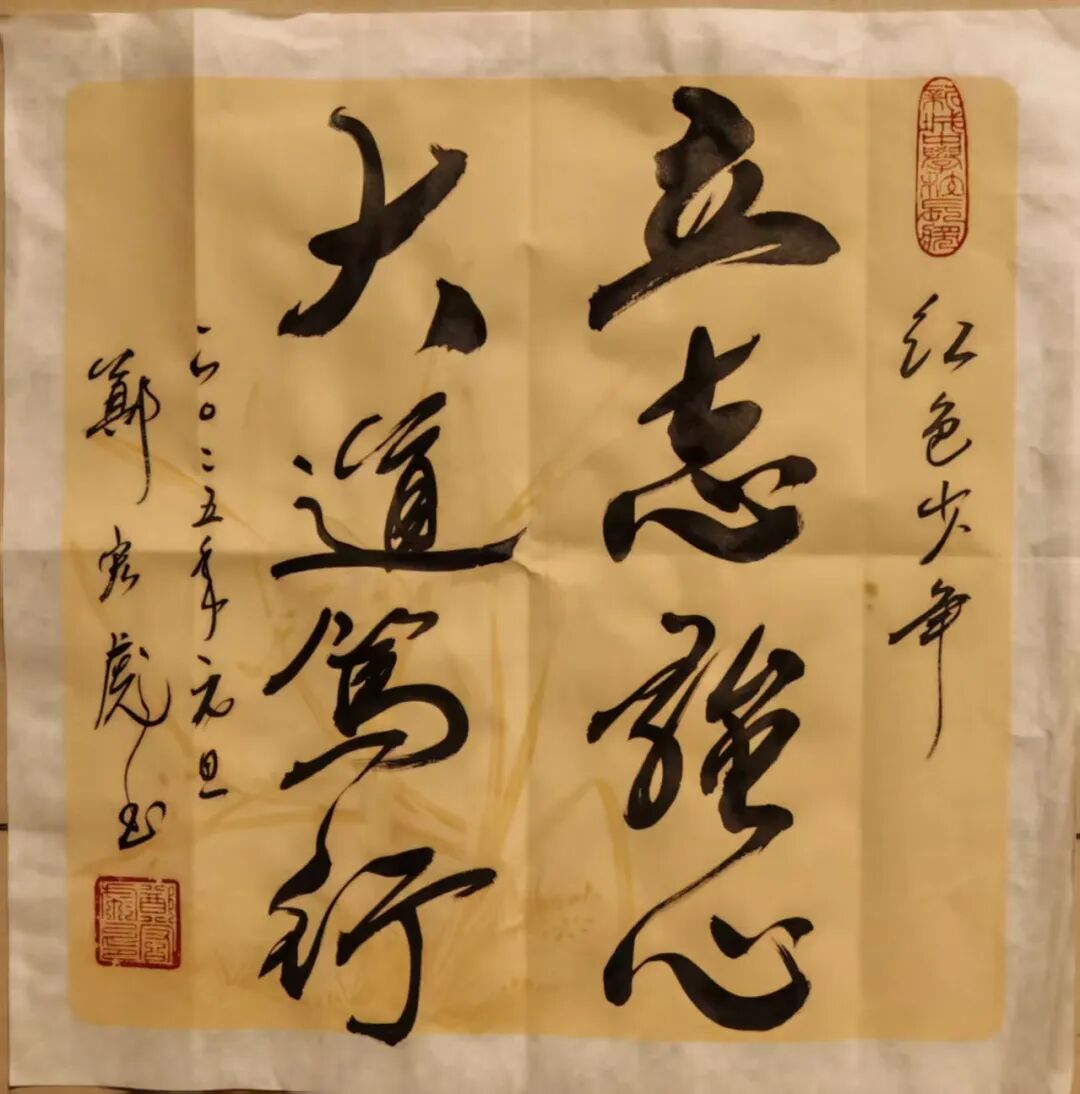 红色少年
立志強心
大道笃行
二〇二五年元旦
鄭宏书